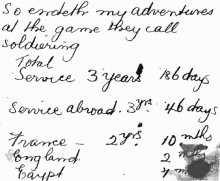 So endeth my adventures
at the game they call
soldiering
Total
Service 3 years 186 days
Service abroad. 3 yrs 46 days
France - 2 yrs. 10 mths
England 2 mths
Egypt